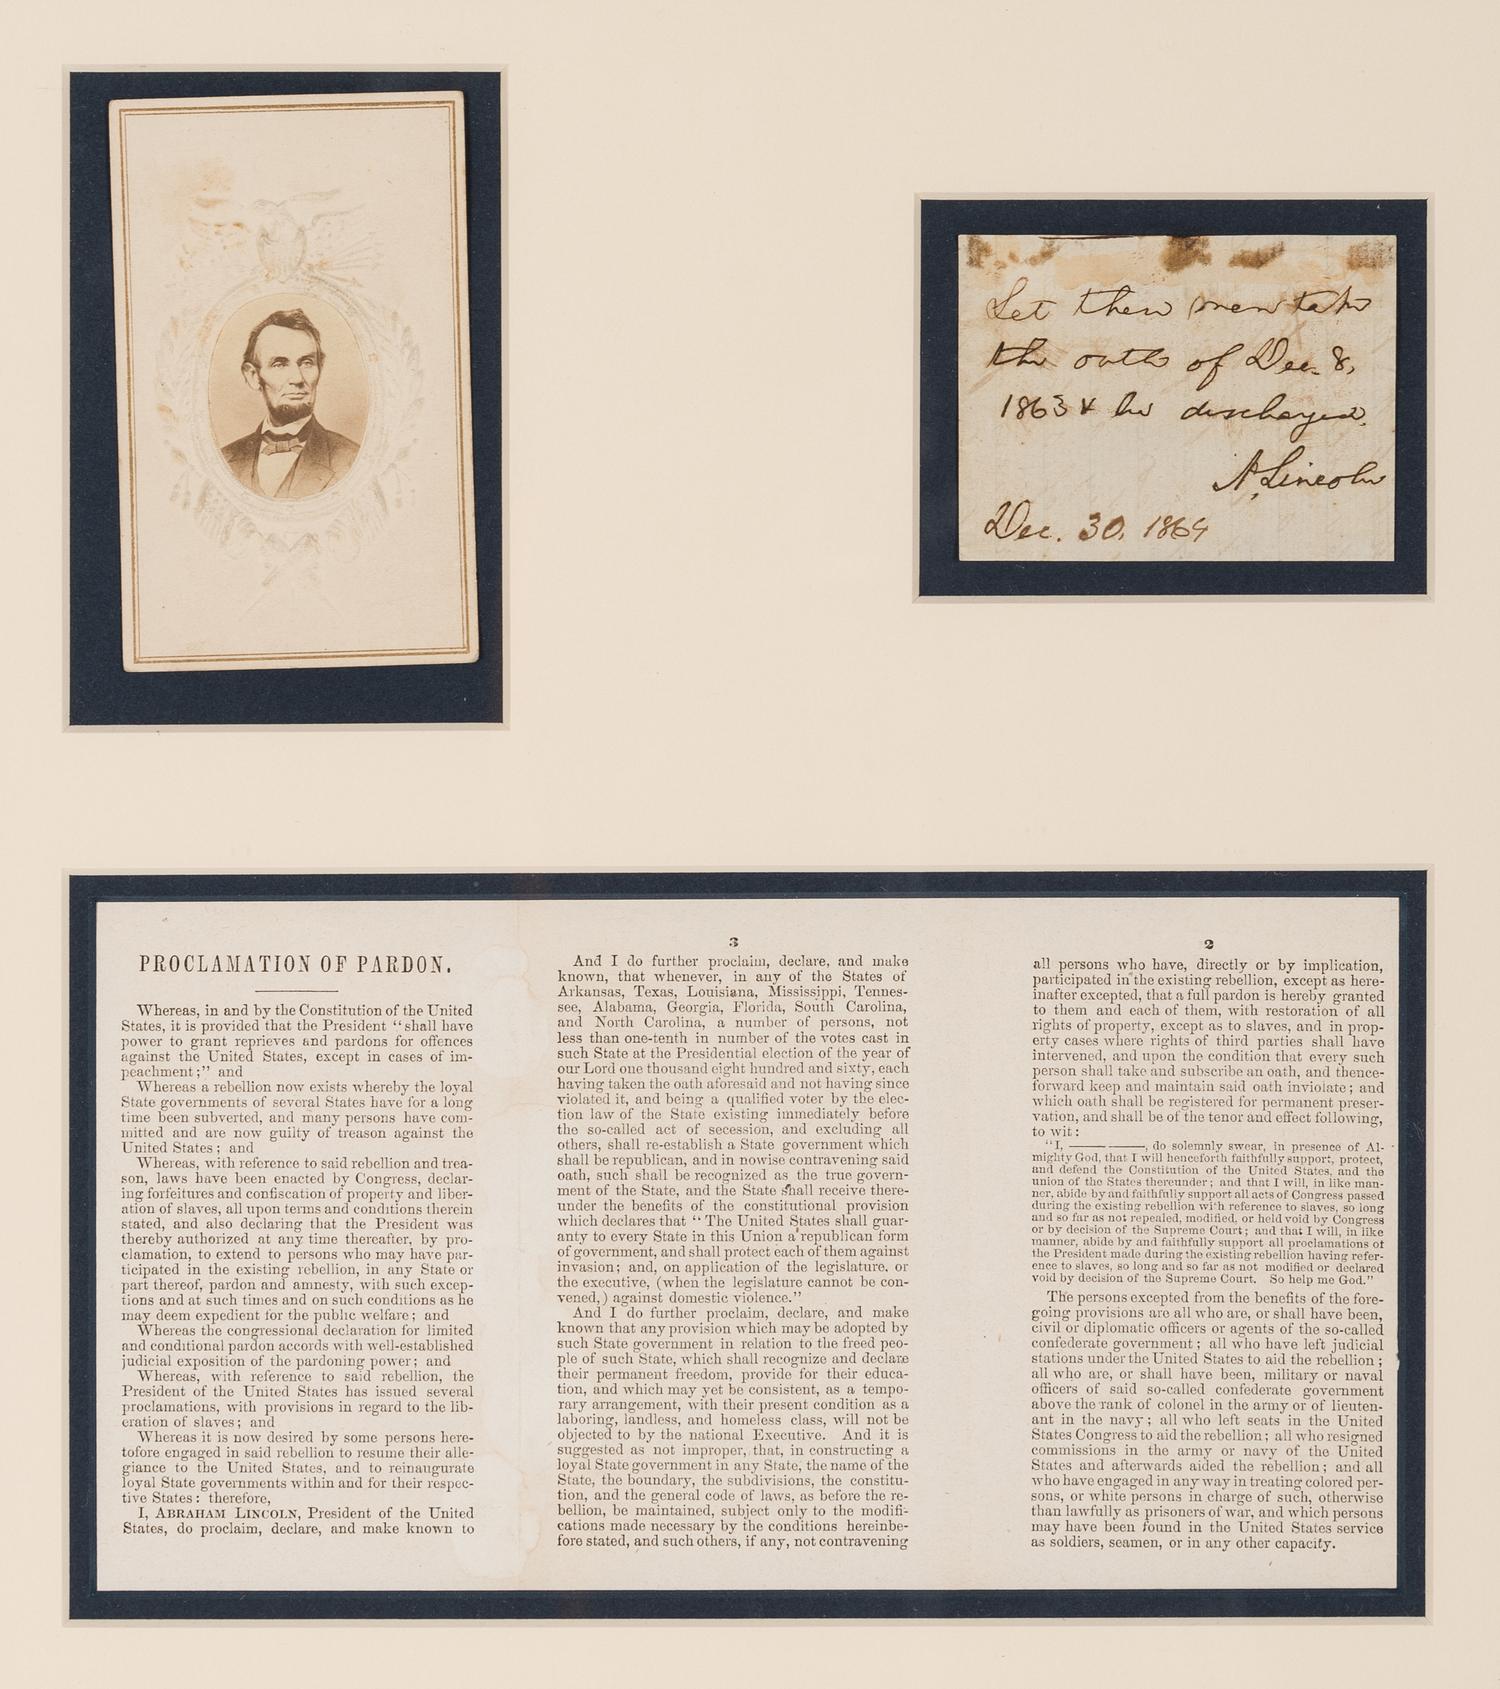 Let these men take
the oath of Dec. 8,
1863 & be discharged.
A. Lincoln
Dec. 30, 1864
PROCLAMATION OF PARDON.
Whereas, in and by the Constitution of the United
States, it is provided that the President “shall have
power to grant reprieves and pardons for offences
against the United States, except in cases of im-
peachment;” and
Whereas a rebellion now exists whereby the loyal
State governments of several States have for a long
time been subverted, and many persons have com-
mitted and are now guilty of treason against the
United States; and
Whereas, with reference to said rebellion and trea-
son, laws have been enacted by Congress, declar-
ing forfeitures and confiscation of property and liber-
ation of slaves, all upon terms and conditions therein
stated, and also declaring that the President was
thereby authorized at any time thereafter, by pro-
clamation, to extend to persons who may have par-
ticipated in the existing rebellion, in any State or
part thereof, pardon and amnesty, with such excep-
tions and at such times and on such conditions as he
may deem expedient for the public welfare; and
Whereas the congressional declaration for limited
and conditional pardon accords with well-established
judicial exposition of the pardoning power; and
Whereas, with reference to said rebellion, the
President of the United States has issued several
proclamations, with provisions in regard to the lib-
eration of slaves; and
Whereas it is now desired by some persons here-
tofore engaged in said rebellion to resume their alle-
giance to the United States, and to reinaugurate
loyal State governments within and for their respec-
tive States: therefore,
I, ABRAHAM LINCOLN, President of the United
States, do proclaim, declare, and make known to
3
And I do further proclaim, declare, and make
known, that whenever, in any of the States of
Arkansas, Texas, Louisiana, Mississippi, Tennes-
see, Alabama, Georgia, Florida, South Carolina,
and North Carolina, a number of persons, not
less than one-tenth in number of the votes cast in
such State at the Presidential election of the year of
our Lord one thousand eight hundred and sixty, each
having taken the oath aforesaid and not having since
violated it, and being a qualified voter by the elec-
tion law of the State existing immediately before
the so-called act of secession, and excluding all
others, shall re-establish a State government which
shall be republican, and in nowise contravening said
oath, such shall be recognized as the true govern-
ment of the State, and the State shall receive there-
under the benefits of the constitutional provision
which declares that “The United States shall guar-
anty to every State in this Union a republican form
of government, and shall protect each of them against
invasion; and, on application of the legislature, or
the executive, (when the legislature cannot be con-
vened,) against domestic violence.”
And I do further proclaim, declare, and make
known that any provision which may be adopted by
such State government in relation to the freed peo-
ple of such State, which shall recognize and declare
their permanent freedom, provide for their educa-
tion, and which may yet be consistent, as a tempo-
rary arrangement, with their present condition as a
laboring, landless, and homeless class, will not be
objected to by the national Executive. And it is
suggested as not improper, that, in constructing a
loyal State government in any State, the name of the
State, the boundary, the subdivisions, the constitu-
tion, and the general code of laws, as before the re-
bellion, be maintained, subject only to the modifi-
cations made necessary by the conditions hereinbe-
fore stated, and such others, if any, not contravening
2
all persons who have, directly or by implication,
participated in the existing rebellion, except as here-
inafter excepted, that a full pardon is hereby granted
to them and each of them, with restoration of all
rights of property, except as to slaves, and in prop-
erty cases where rights of third parties shall have
intervened, and upon the condition that every such
person shall take and subscribe an oath, and thence-
forward keep and maintain said oath inviolate; and
which oath shall be registered for permanent preser-
vation, and shall be of the tenor and effect following,
to wit:
“I, —— ——, do solemnly swear, in presence of Al-
mighty God, that I will henceforth faithfully support, protect,
and defend the Constitution of the United States, and the
union of the States thereunder; and that I will, in like man-
ner, abide by and faithfully support all acts of Congress passed
during the existing rebellion with reference to slaves, so long
and so far as not repealed, modified, or held void by Congress
or by decision of the Supreme Court; and that I will, in like
manner, abide by and faithfully support all proclamations of
the President made during the existing rebellion having refer-
ence to slaves, so long and so far as not modified or declared
void by decision of the Supreme Court. So help me God.”
The persons excepted from the benefits of the fore-
going provisions are all who are, or shall have been,
civil or diplomatic officers or agents of the so-called
confederate government; all who have left judicial
stations under the United States to aid the rebellion;
all who are, or shall have been, military or naval
officers of said so-called confederate government
above the rank of colonel in the army or of lieuten-
ant in the navy; all who left seats in the United
States Congress to aid the rebellion; all who resigned
commissions in the army or navy of the United
States and afterwards aided the rebellion; and all
who have engaged in any way in treating colored per-
sons, or white persons in charge of such, otherwise
than lawfully as prisoners of war, and which persons
may have been found in the United States service
as soldiers, seamen, or in any other capacity.